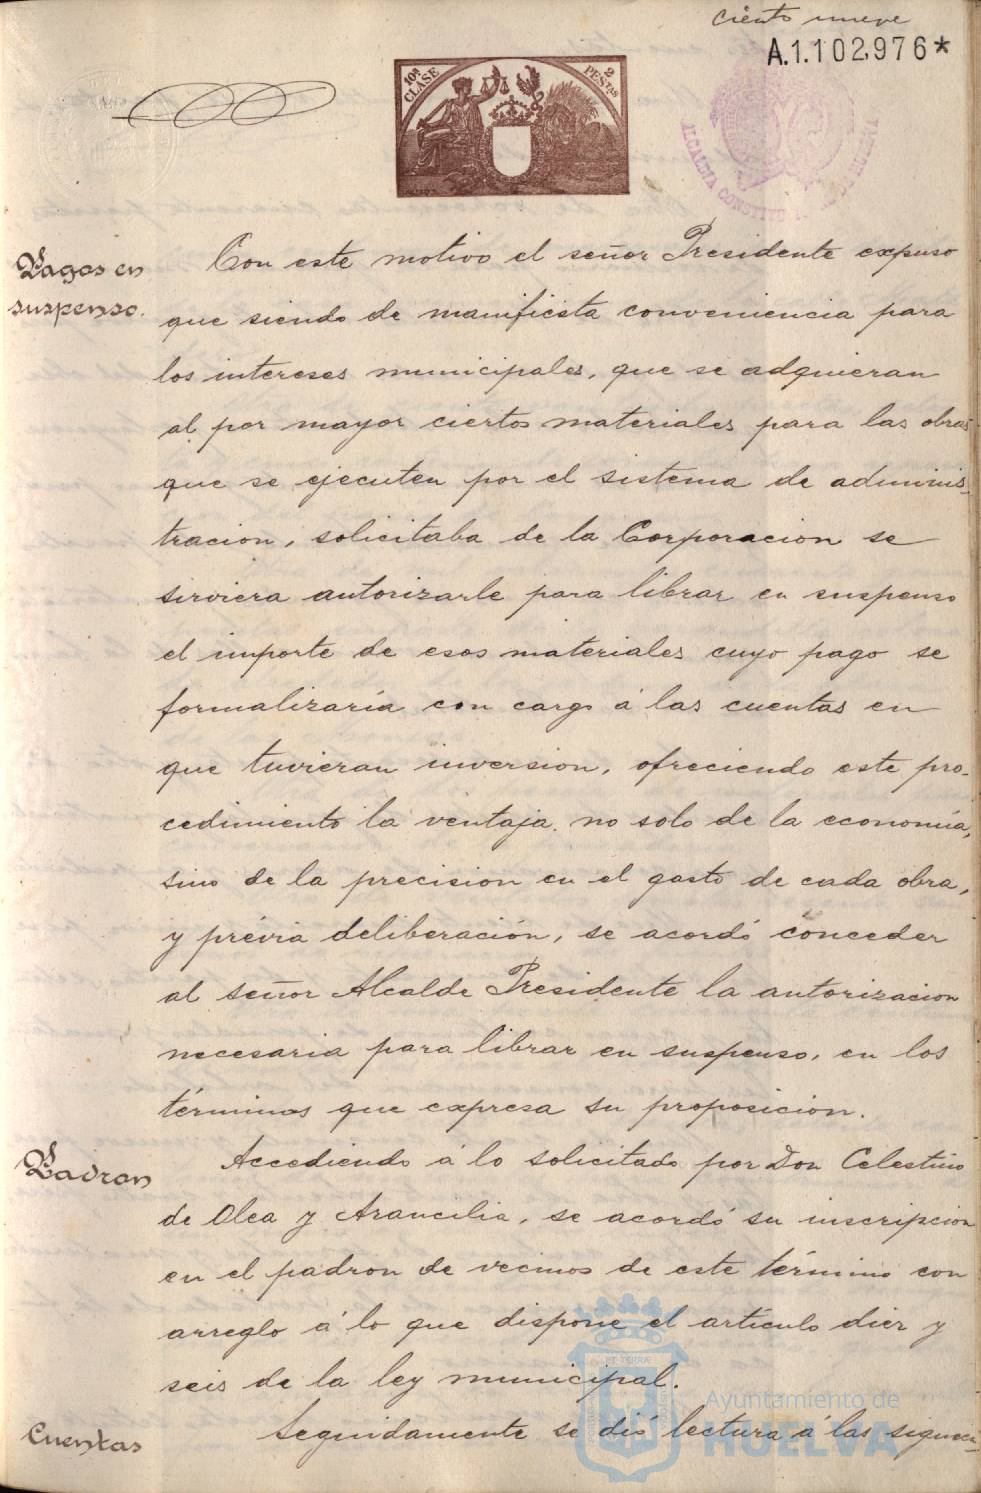 ciento nueve
A.1.102,976*
10ª CLASE
2 PESETAS
ALCALDIA CONSTIT
Pagos en
suspenso.
Con este motivo el señor Presidente expuso
que siendo de manifiesta conveniencia para
los intereses municipales, que se adquieran
al por mayor ciertos materiales para las obras
que se ejecuten por el sistema de adminis-
tracion, solicitaba de la Corporacion se
sirviera autorizarle para librar en suspenso
el importe de esos materiales cuyo pago se
formalizaría con cargo á las cuentas en
que tuvieran inversion, ofreciendo este pro-
cedimiento la ventaja no solo de la economía,
sino de la precision en el gasto de cada obra,
y prévia deliberación, se acordó conceder
al señor Alcalde Presidente la autorizacion
necesaria para librar en suspenso, en los
términos que expresa su proposicion.
Padron
Accediendo á lo solicitado por Don Celestino
de Olea y Arancilia, se acordó su inscripcion
en el padron de vecinos de este término con
arreglo á lo que dispone el artículo diez y
seis de la ley municipal.
Cuentas
Seguidamente se dió lectura á las siguien-
Ayuntamiento de
HUELVA